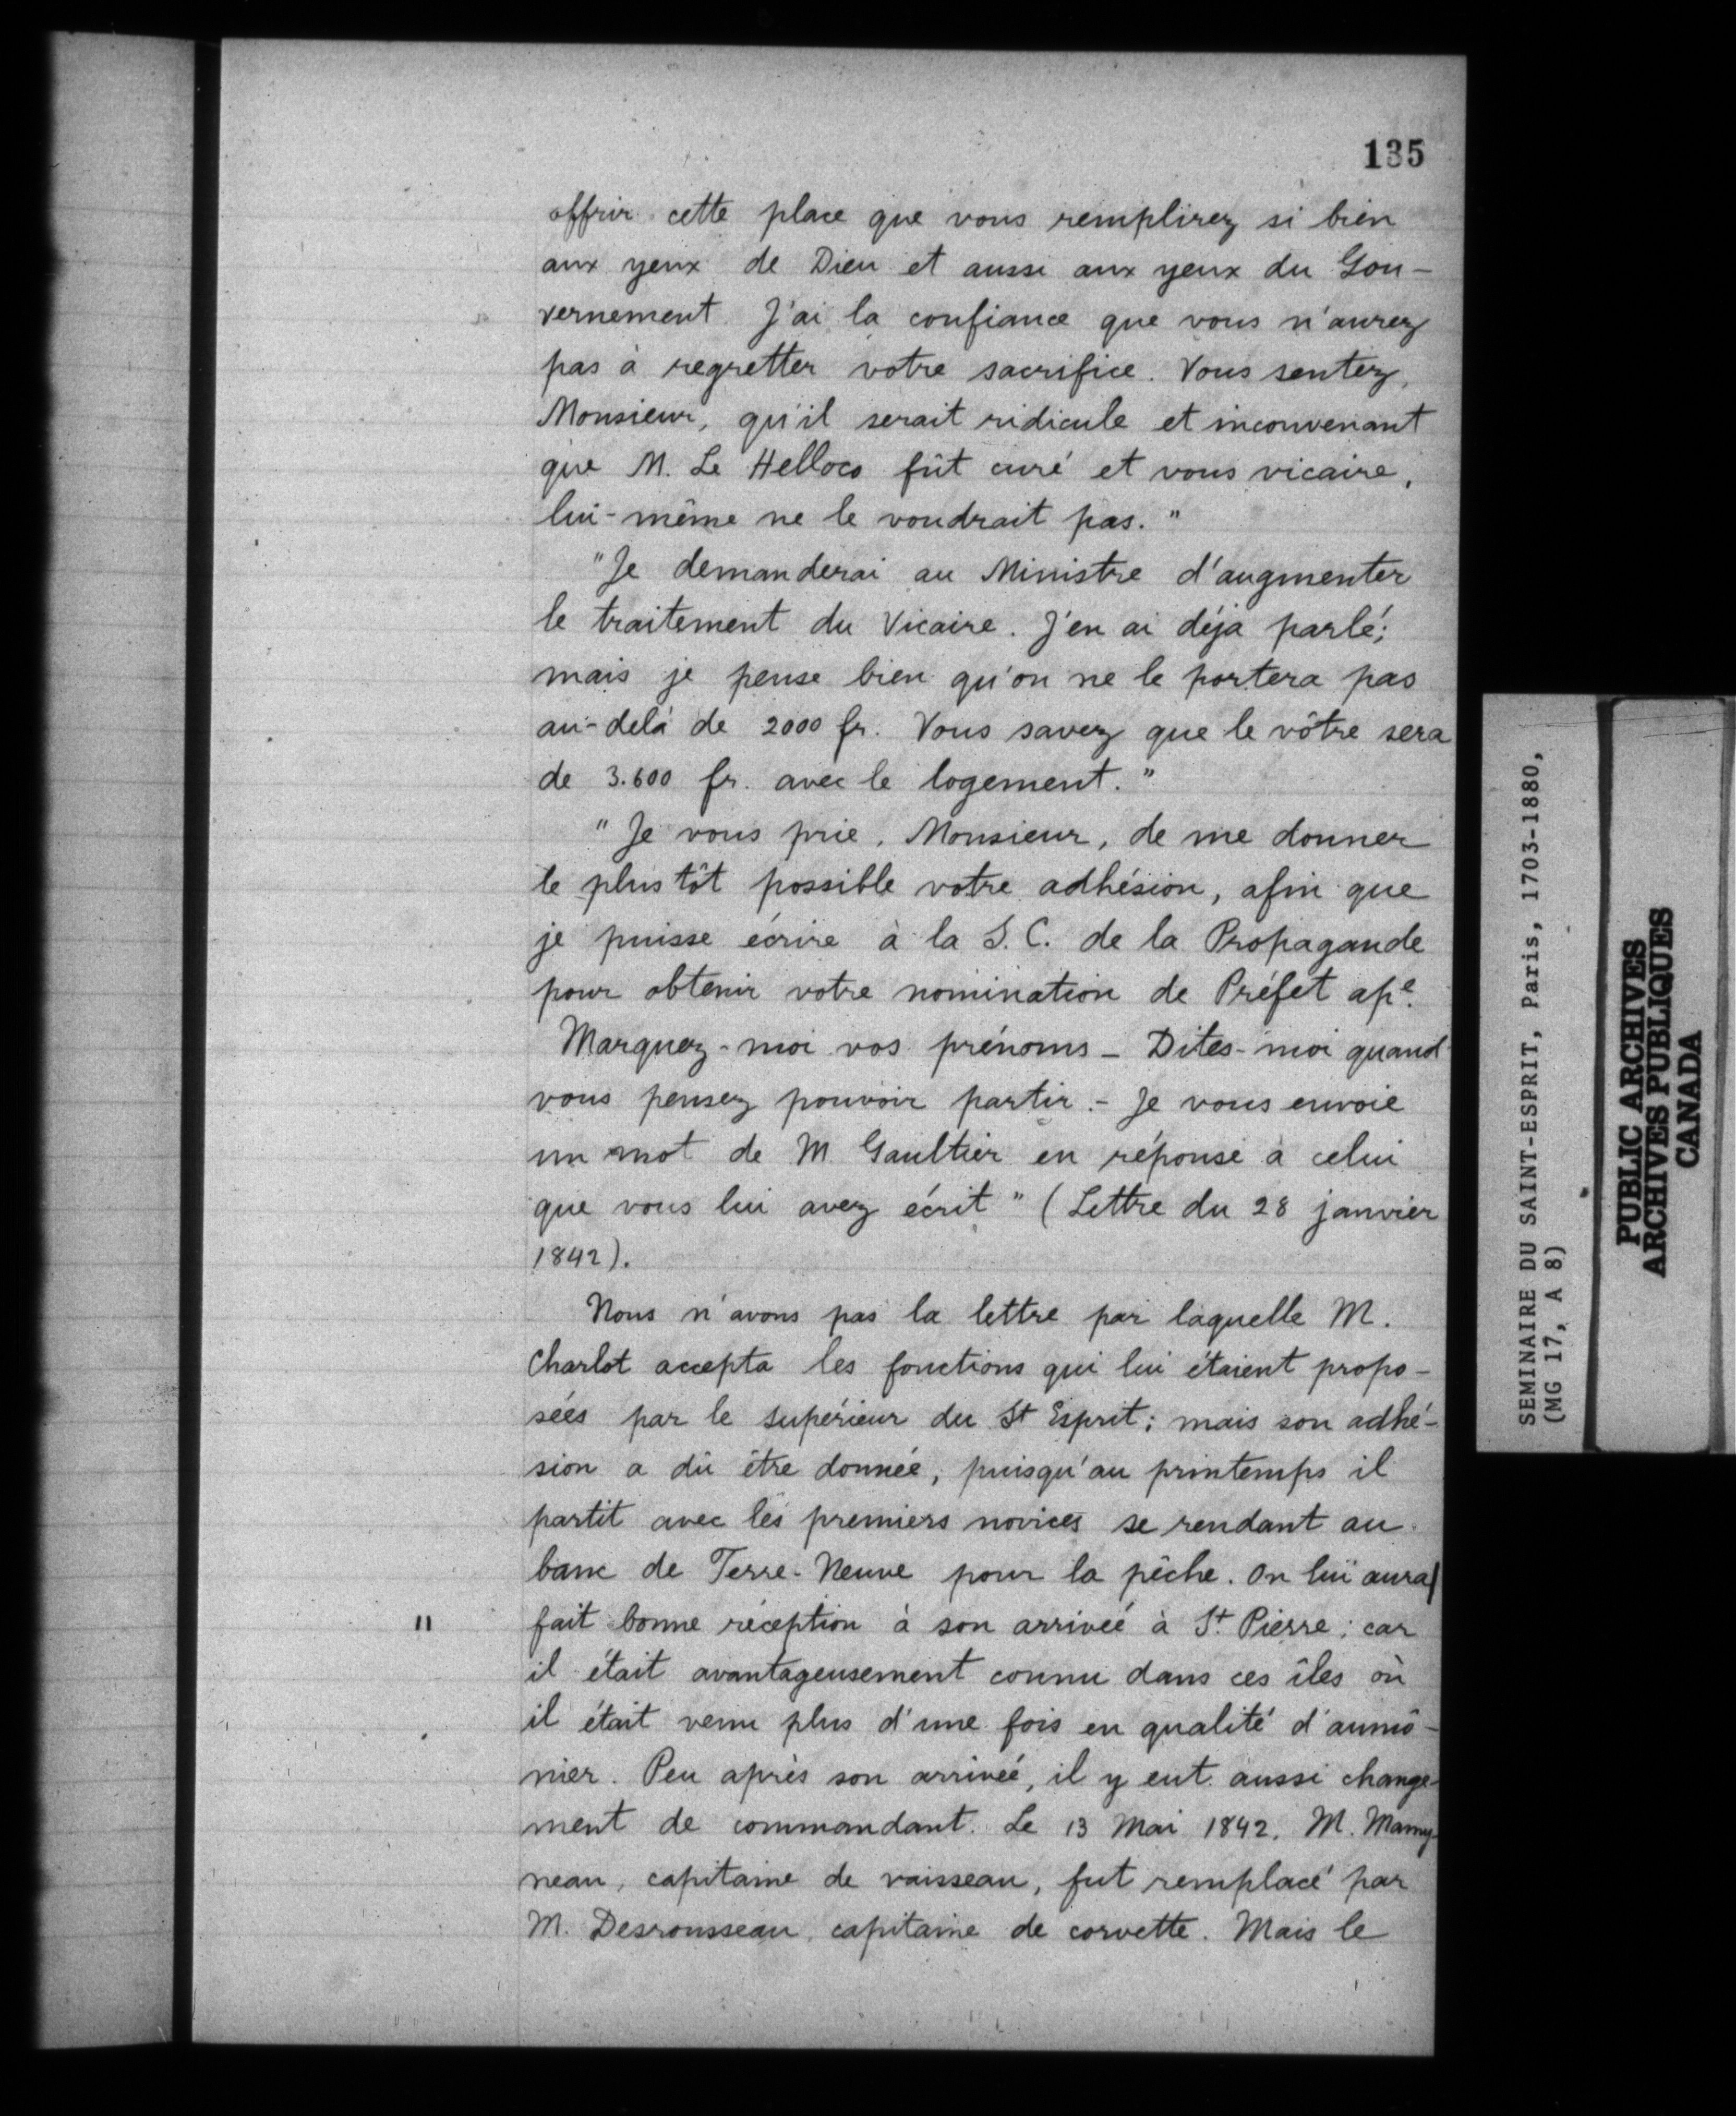 135
offrir cette place que vous remplirez si bien
aux yeux de Dieu et aussi aux yeux du Gou-
vernement. J'ai la confiance que vous n'aurez
pas à regretter votre sacrifice. Vous sentez,
Monsieur, qu'il serait ridicule et inconvenant
que M. Le Helloco fût curé et vous vicaire,
lui-même ne le voudrait pas."
"Je demanderai au Ministre d'augmenter
le traitement du Vicaire. J'en ai déja parlé;
mais je pense bien qu'on ne le portera pas
au-delà de 2000 fr. Vous savez que le vôtre sera
de 3.600 fr. avec le logement."
"Je vous prie, Monsieur, de me donner
le plus tôt possible votre adhésion, afin que
je puisse écrire à la S. C. de la Propagande
pour obtenir votre nomination de Préfet ap^e.
Marquez-moi vos prénoms - Dites-moi quand
vous pensez pouvoir partir. - Je vous envoie
un mot de M Gaultier en réponse à celui
que vous lui avez écrit" (Lettre du 28 janvier
1842).
Nous n'avons pas la lettre par laquelle M.
Charlot accepta les fonctions qui lui étaient propo-
sées par le supérieur du St Esprit; mais son adhé-
sion a dû être donnée, puisqu'au printemps il
partit avec les premiers novices se rendant au
banc de Terre-Neuve pour la pêche. On lui aura
" fait bonne réception à son arrivée à St. Pierre; car
il était avantageusement connu dans ces îles où
il était venu plus d'une fois en qualité d'aumô-
nier. Peu après son arrivée, il y eut aussi change-
ment de commandant. Le 13 Mai 1842, M. Mamy-
neau, capitaine de vaisseau, fut remplacé par
M. Desrousseau, capitaine de corvette. Mais le
SEMINAIRE DU SAINT-ESPRIT, Paris, 1703-1880,
(MG 17, A 8)
PUBLIC ARCHIVES
ARCHIVES PUBLIQUES
CANADA